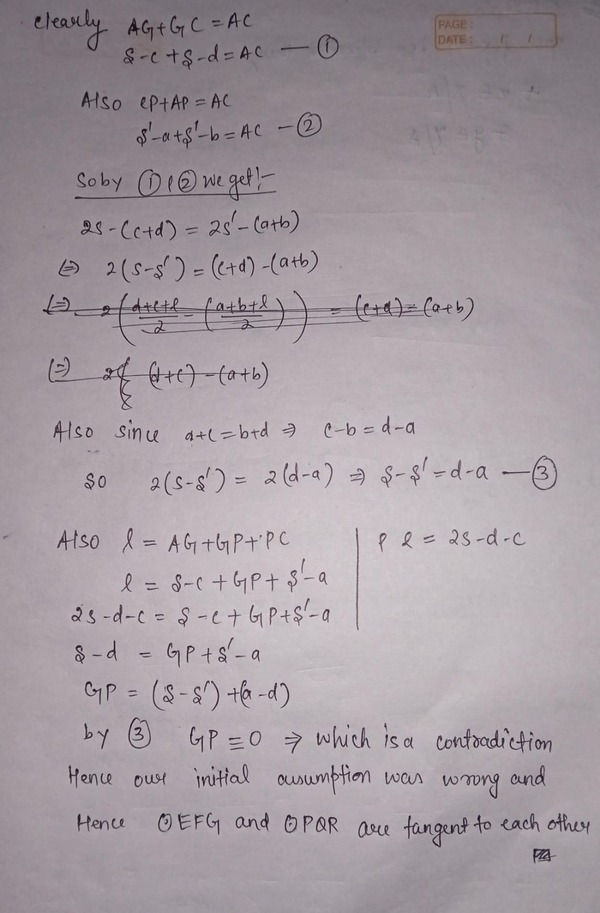 PAGE:
DATE: / /
Clearly AG+GC=AC
S-c+S-d=AC — ①
Also CP+AP=AC
S'-a+S'-b=AC — ②
So by ① & ② we get!-
2S-(c+d) = 2S'-(a+b)
⇔ 2(S-S') = (c+d)-(a+b)
⇔ 2((d+c+l)/2 - (a+b+l)/2) = (c+d)-(a+b)
⇔ (d+c)-(a+b)
Also since a+c=b+d ⇒ c-b=d-a
So 2(S-S') = 2(d-a) ⇒ S-S'=d-a — ③
Also l = AG+GP+PC | & l = 2S-d-c
l = S-c+GP+S'-a
2S-d-c = S-c+GP+S'-a
S-d = GP+S'-a
GP = (S-S')+(a-d)
by ③ GP≡0 ⇒ which is a contradiction
Hence our initial assumption was wrong and
Hence ⊙EFG and ⊙PQR are tangent to each other